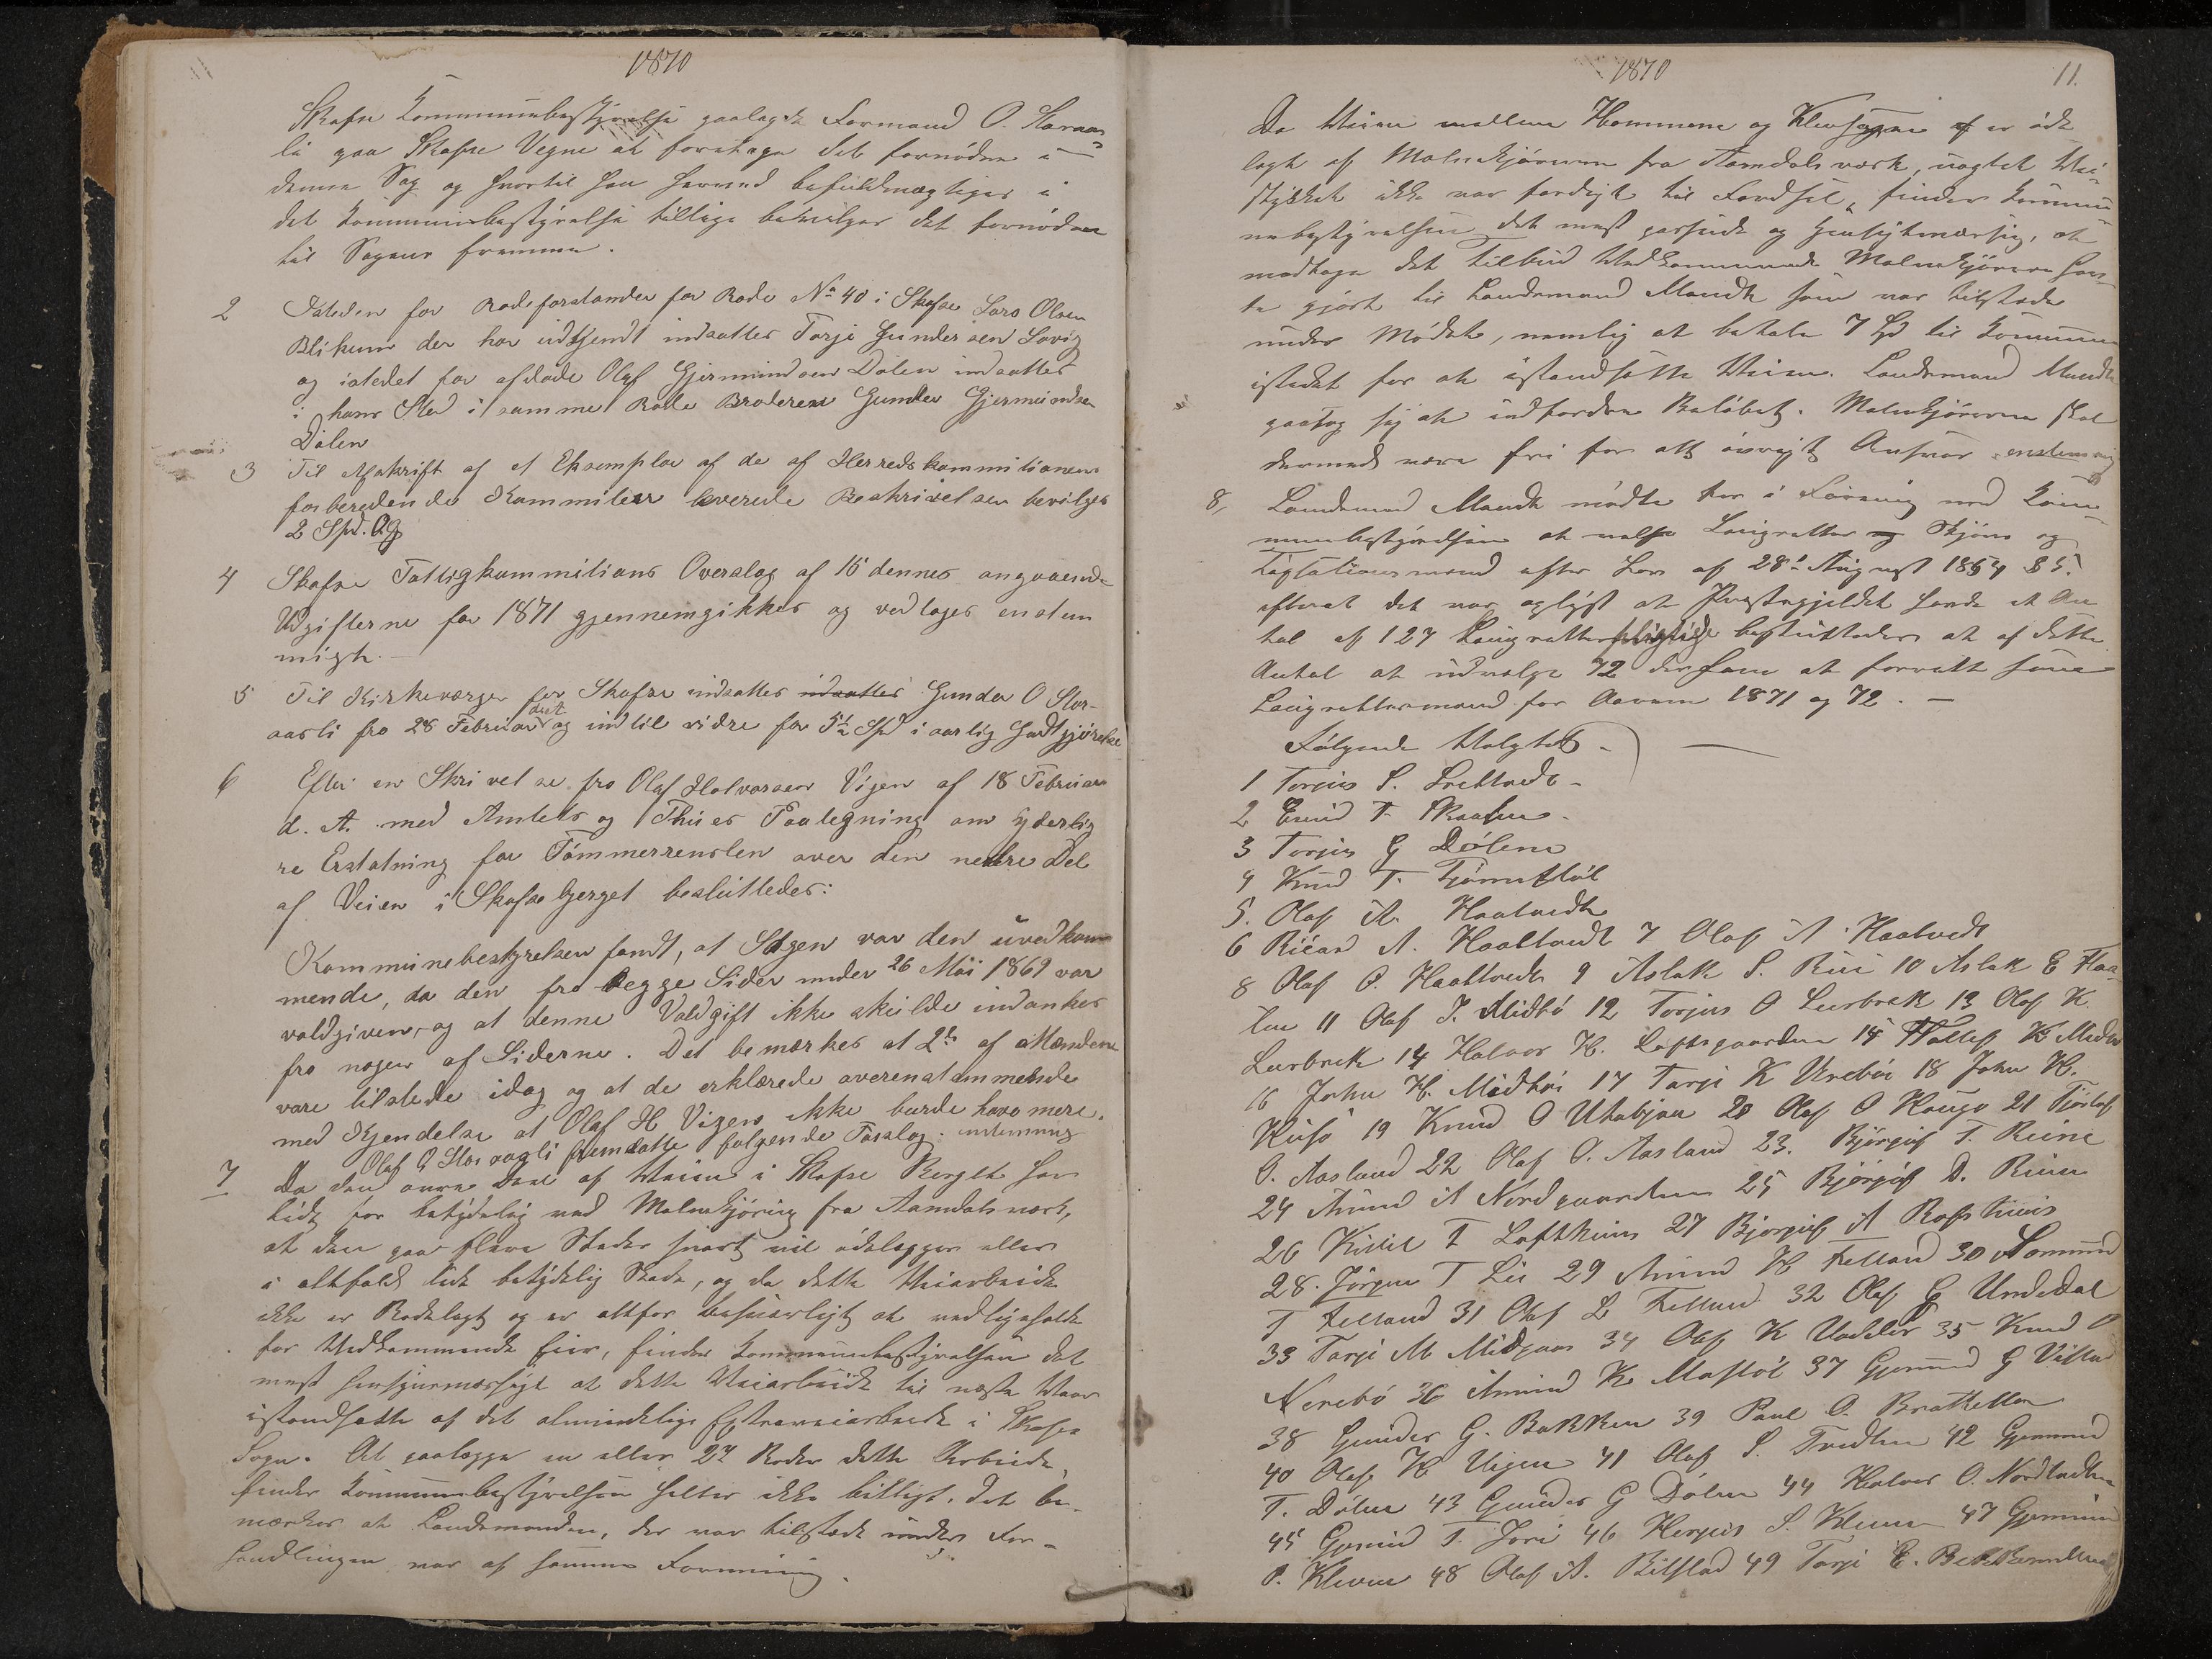 1870
Skafse Kommunebestyrelse paalagde Formand O. Storaas-
li paa Skafse Vegne at foretage det fornødne i
denne Sag og hvortil han herved befuldmægtiges i
det Kommunebestyrelse tillige bevilger det fornødne
til Sagens fremme.
2 Isteden for Rodeforstander for Rode No 40 i Skafse Lars Olsen
der har udtjendt indsattes Torje Gundersen
og istedet for afdøde Olaf Gjermundsen Dølen indsattes
i hans Sted i samme Rode Broderen Gunder Gjermundsen
Dølen
3 Til Afskrift af et Exemplar af de af Herredskommitionens
forberedende Kommiteer leverede Beskrivelser bevilges
2 Spd.
4 Skafse Fattigkommitions Overslag af 16 dennes angaaende
Udgifterne for 1871 gjennemgikkes og vedtoges enstem
migt.
5 Til Kirkeværge for Skafse indsattes indsattes Gunder O Stor-
aasli fra 28 Februar og indtil vidre for 5½ Spd i aarlig Godtgjørelse
6 Efter en Skrivelse fra Olaf Halvorsen Vigen af 18 Februar
d. A. med Amtets og Thues Paalegning om yderlig
re Erstatning for Tømmerrensten over den nedre Del
af Veien i Skafseberget besluttedes:
Kommunebestyrelsen fandt, at Sagen var den uvedkom
mende, da den fra begge Sider under 26 Mai 1869 var
voldgiven, og at denne Voldgift ikke skulde indankes
fra nogen af Siderne. Det bemærkes at 2de af Mændene
vare tilstede idag og at de erklærede overenstemmende
med Kjendelse at Olaf H Vigen ikke burde have mere.
Olaf O Storaasli fremsatte følgende Forslag: enstemmig
7 Da den øvre Deel af Veien i Skafse Berget har
lidt før betydelig ved Malmkjøring fra Aamdals værk,
at den paa flere Steder snart vil ødelegges eller
i altfald lide betydelig Skade, og da dette Veiarbeide
ikke er Rodelagt og er altfor besværligt at vedligeholde
for Vedkommende Eier, finder Kommunebestyrelsen det
mest hensigtsmæssigt at dette Veiarbeide til næste Vaar
istandsætte af det almindelige Extraveiarbeide i Skafse
Sogn. At paalegge en eller 2de Roder dette Arbeide,
finder Kommunebestyrelsen heller ikke billigt. Det be-
mærkes at Lensmanden, der var tilstede under For-
handlingen var af samme Formening.
1870 11.
Da Veien mellem Hommene og er øde
lagt af Malmkjørerne fra Aamdals værk, uagtet Vei
stykket ikke var færdigt til Færdsel, finder Kommu-
nebestyrelsen det mest passende og hensigtmæssig, at
modtage det Tilbud Vedkommende Malmkjørere hav-
de gjort til Lensmand Mandt som var tilstede
under Mødet, nemlig at betale 7 Spd til Kommunen
istedet for at istandsætte Veien. Lensmand Mandt
paatog sig at indfordre Beløbet. Malmkjørerne skal
dermed være fri for alt øvrigt Ansvar enstemmig
8, Lensmand Mandt mødte for i Forening med Kom-
munebestyrelsen at vælge Laugrettes og Skjøns og
Taxtationsmænd efter Lov af 28de August 1854 § 5.
efterat det var oplyst at Præstegjeldet havde et An
tal af 127 Laugrettes besluttedes at af dette
Antal at udvælge 72 der have at forrette som
Laugrettesmænd for Aarene 1871 og 72. —
Følgende Valgtes —
1 Torjus S.
2 T.
3 Torjus G Dølene
4 Knud T.
5. Olaf A. Haatvedt
6 A. Haatvedt 7 Olaf A Haatvedt
8 Olaf O. Haatvedt 9 Aslak S. Rui 10 Aslak E
11 Olaf J. Midbø 12 Torjus O Lurbrek 13 Olaf K
Lurbrek 14 Halvor H. Loftsgaarden 15 K Midbø
16 John H. Midbø 17 Torje K Urebø 18 John H.
19 Knud O Utabjaa 20 Olaf O Haugo 21
O. Aasland 22 Olaf O. Aasland 23. Bjørgulf T. Reine
24 Amund A Nordgaarden 25 Bjørgulf D. Reine
26 Kittil T Loftheim 27 Bjørgulf A
28. Jørgen T Lie 29 Amund H Felland 30
T Felland 31 Olaf L Felland 32 Olaf G Undedal
33 Torje M Midgaar 34 Olaf K 35 Knud O
Nerebø 36 Amund K. 37 Gjermund G
38 Gunder G. Bakken 39 Paul O. Brattestøl
40 Olaf H Vigen 41 Olaf S. Tvedten 42 Gjermund
T. Dølen 43 Gunder G Dølen 44 Halvor O.
45 Gjermund T. Jore 46 S. Kleven 47 Gjermund
P. Kleven 48 Olaf A. 49 Torje E.